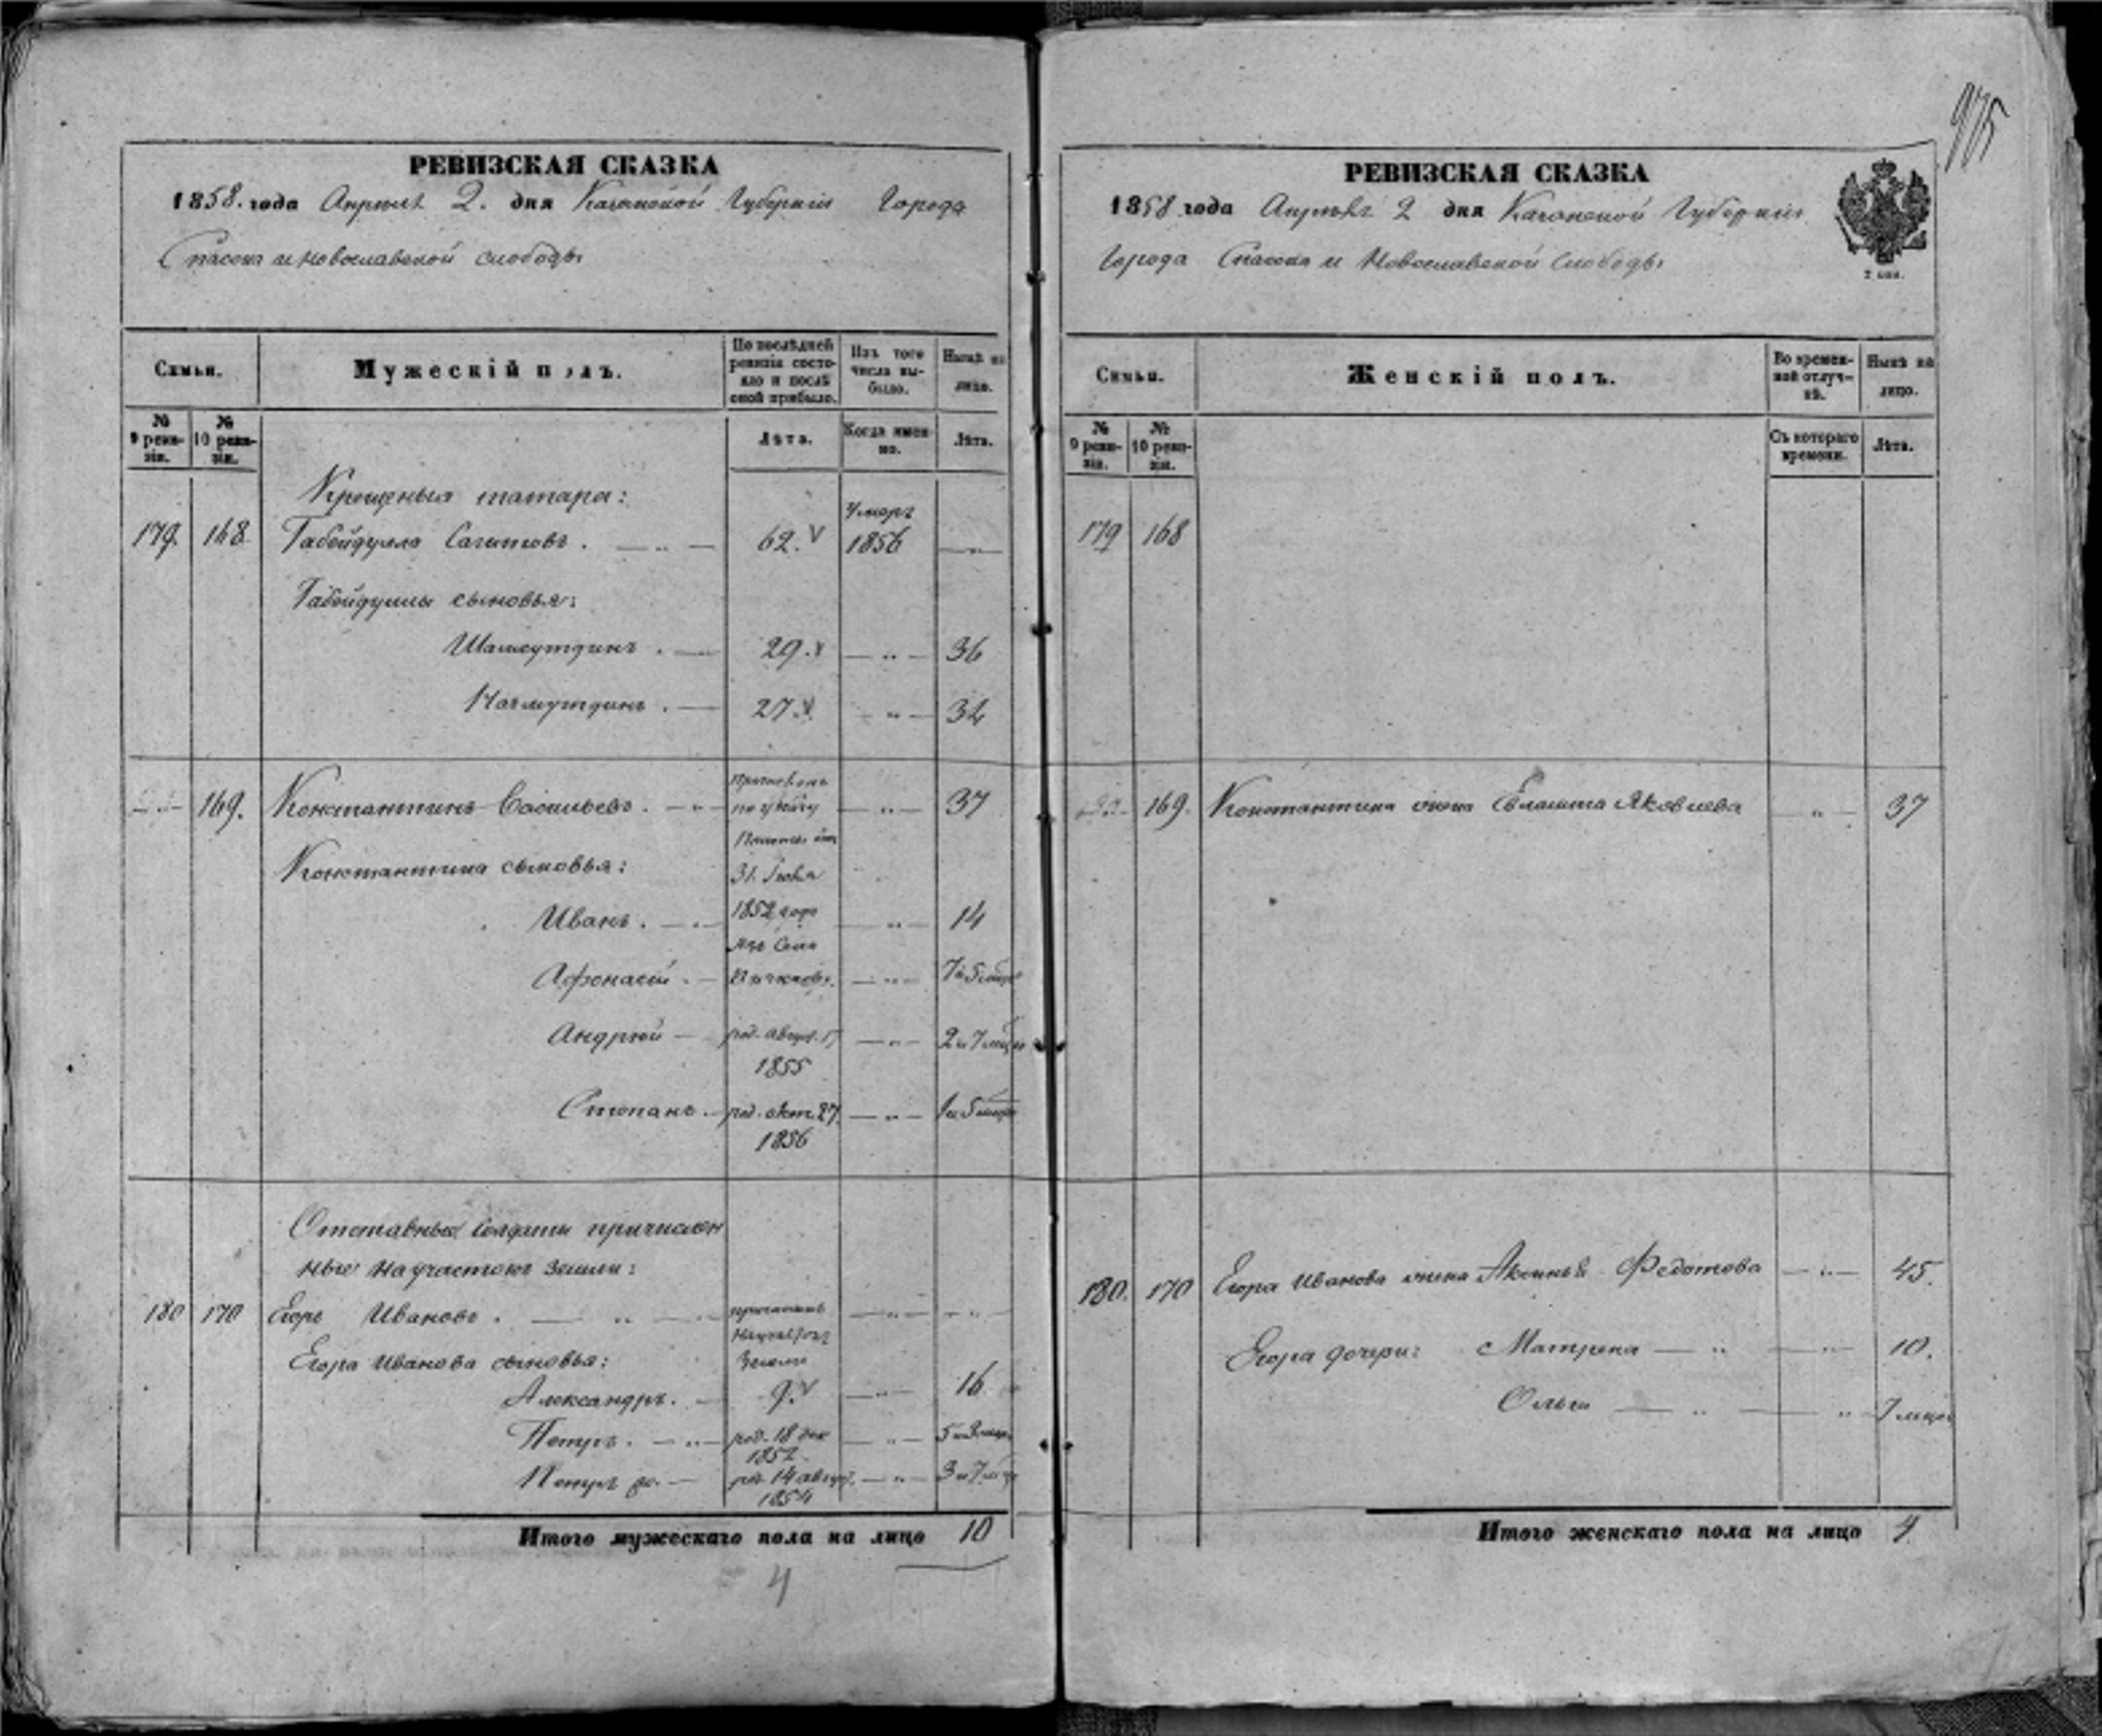 975
РЕВИЗСКАЯ СКАЗКА
1858. года Апрѣля 2. дня Казанской Губерніи Города
Спасска и Новославской слободы
Семьи.
Мужескій полъ.
По послѣдней ревизіи состояло и послѣ оной прибыло.
Изъ того числа выбыло.
Нынѣ на лицо.
№ 9 ревизіи.
№ 10 ревизіи.
Лѣта.
Когда именно.
Лѣта.
Крещеныя татара:
179. 168. Габейдулла Сагитовъ. 62. V Умеръ 1856
Габейдуллы сыновья:
Шамсутдинъ. 29. 36
Нагмутдинъ. 27. 34
169. Константинъ Васильевъ. 37
по указу
Константина сыновья:
31. 1852 года
Иванъ. 14
изъ Села
Афонасій. 7 и 5 мѣс
Андрей род. август. 17 1855 2 и 7 мѣс
Степанъ. род. окт. 27. 1856 1 и 5 мѣс
Отставные солдаты причислен
ные на участокъ земли:
180 170 Егоръ Ивановъ.
земли
Егора Иванова сыновья:
Александръ. 9. V 16
Петръ. род. 18 дек 1852. 5 и 3 мѣс
Петръ род. 14 август. 1854 3 и 7 мѣс
Итого мужескаго пола на лицо 10
4
РЕВИЗСКАЯ СКАЗКА
1858 года Апрѣля 2 дня Казанской Губерніи
Города Спасска и Новославской Слободы
2 коп.
Семьи.
Женскій полъ.
Во временной отлучкѣ.
Нынѣ на лицо.
№ 9 ревизіи.
№ 10 ревизіи.
Съ котораго времени.
Лѣта.
179 168
169. Константина жена Яковлева 37
180. 170 Егора Иванова жена Аксинья Федотова 45.
Егора дочери: Матрена 10.
Ольга 7 мѣс
Итого женскаго пола на лицо 4